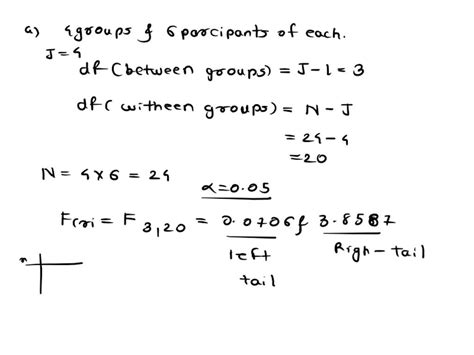 a) 4groups & 6parcipants of each.
J=4
df (between groups) = J-1 = 3
df ( witheen groups) = N - J
= 24-4
=20
N = 4x6 = 24
α=0.05
Fcri = F 3,20 = 0.0706 & 3.8587
left tail
Righ-tail